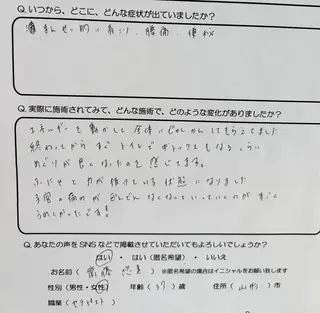 Q. いつから、どこに、どんな症状が出ていましたか？
まんせい的な肩こり、腰痛、便秘
Q. 実際に施術されてみて、どんな施術で、どのような変化がありましたか？
エネルギーを動かして全体にじゅんかんしてもらえてました
終わってからすぐトイレで
めぐりが良くなったのを感じてます。
ふだせて力が抜けている状態になりました
子宮の痛みがどんどんなくなっていっていくのがすごく
うれしかったです！
Q. あなたの声をSNSなどで掲載させていただいてもよろしいでしょうか？
はい ・ はい(匿名希望) ・ いいえ
お名前( 悠美 )※匿名希望の場合はイニシャルをお願い致します
性別(男性・女性) 年齢(37)歳 住所(山形)市
職業(セラピスト)